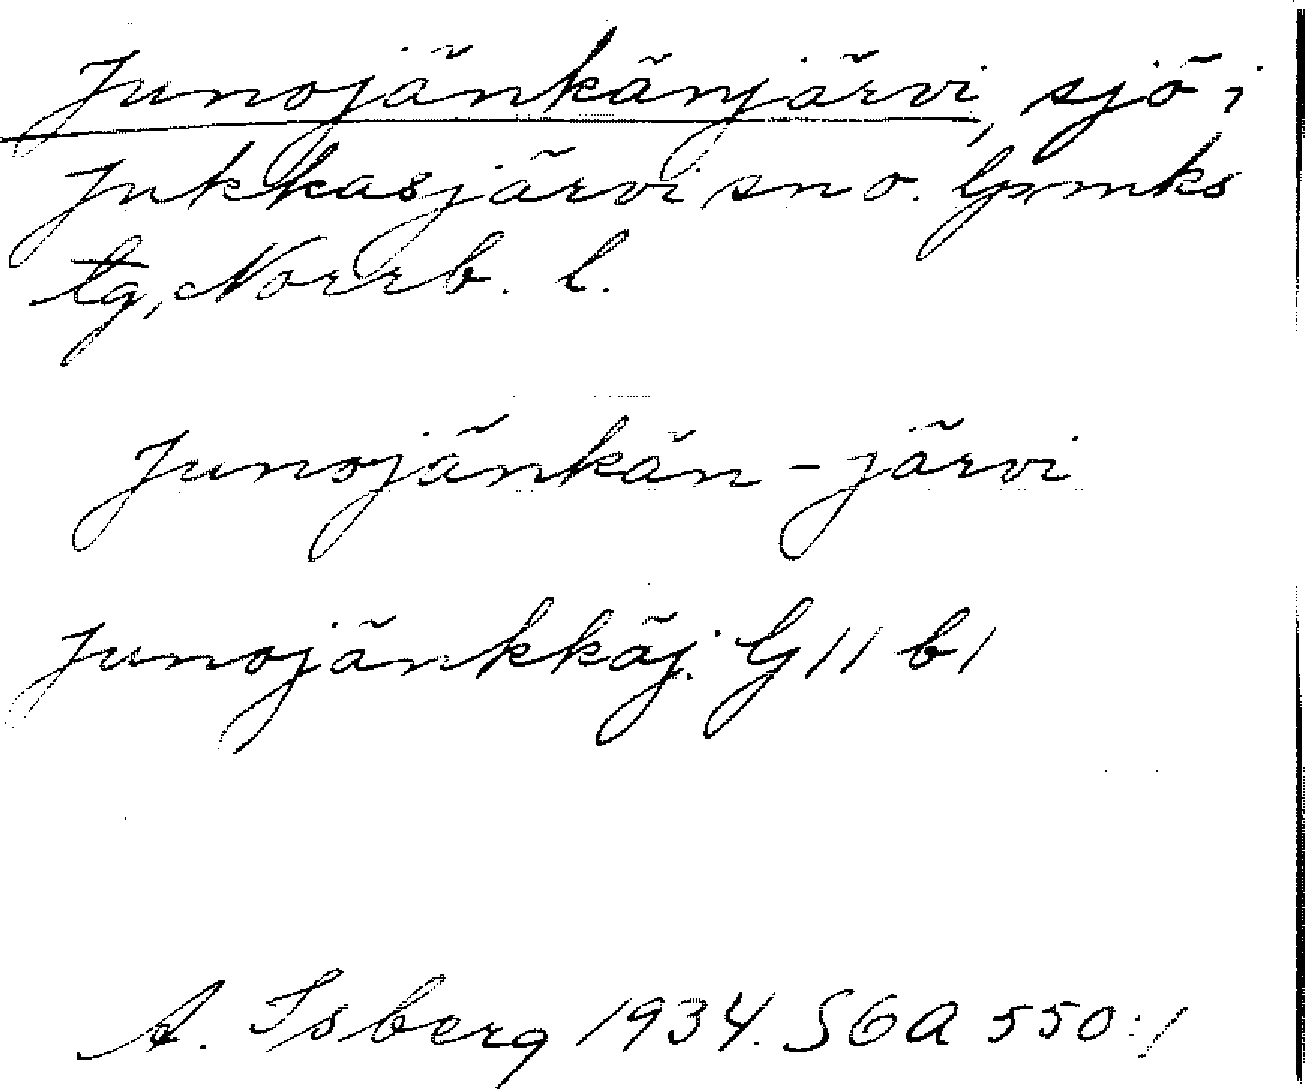 Junojänkänjärvi, sjö i
Jukkasjärvi sn o. lpmks
tg, Norrb. l.
Junojänkän-järvi
Junojänkkäj. G11 b1
A. Isberg 1934. SGA 550:1